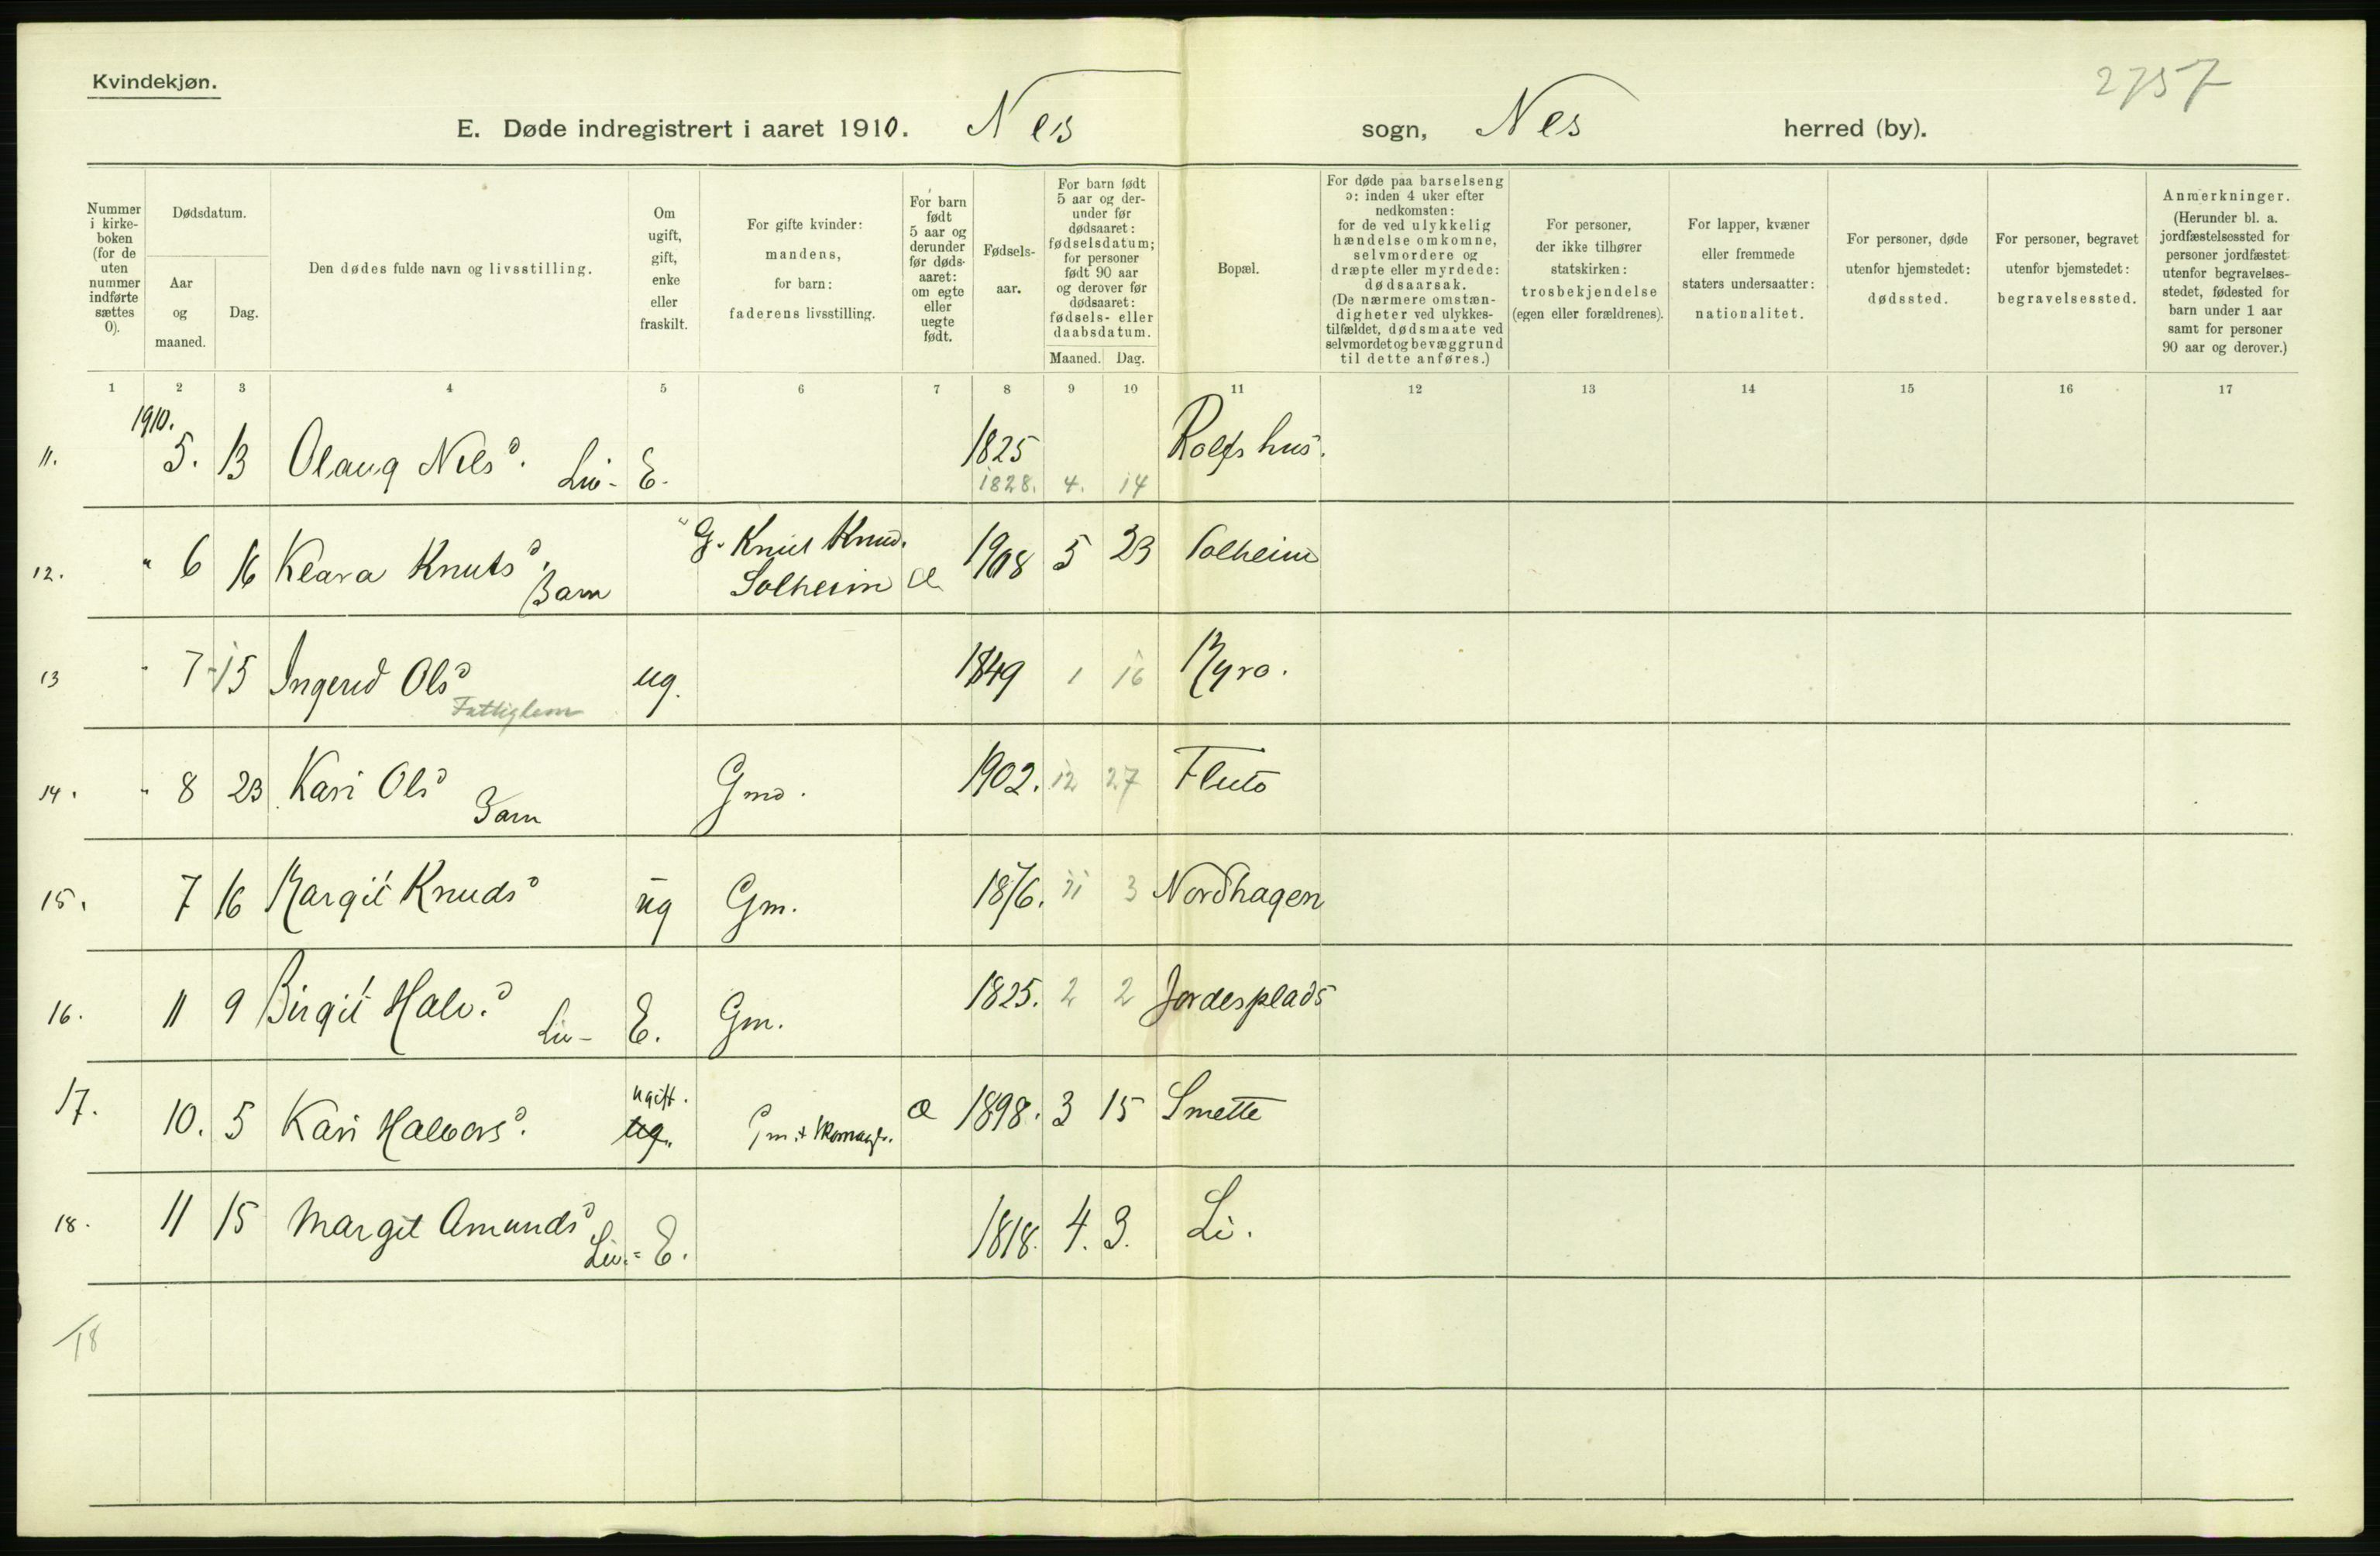 Kvindekjøn.
2757
E. Døde indregistrert i aaret 1910. Nes sogn, Nes herred (by).
Nummer i kirke-boken (for de uten nummer indførte sættes 0).
Dødsdatum.
Aar og maaned.
Dag.
Den dødes fulde navn og livsstilling.
Om ugift, gift, enke eller fraskilt.
For gifte kvinder: mandens, for barn: faderens livsstilling.
For barn født 5 aar og derunder før døds-aaret: om egte eller uegte født.
Fødsels-aar.
For barn født 5 aar og der-under før dødsaaret: fødselsdatum; for personer født 90 aar og derover før dødsaaret: fødsels- eller daabsdatum.
Maaned. Dag.
Bopæl.
For døde paa barselseng ɔ: inden 4 uker efter nedkomsten: for de ved ulykkelig hændelse omkomne, selvmordere og dræpte eller myrdede: dødsaarsak. (De nærmere omstæn-digheter ved ulykkes-tilfældet, dødsmaate ved selvmordet og bevæggrund til dette anføres.)
For personer, der ikke tilhører statskirken: trosbekjendelse (egen eller forældrenes).
For lapper, kvæner eller fremmede staters undersaatter: nationalitet.
For personer, døde utenfor hjemstedet: dødssted.
For personer, begravet utenfor hjemstedet: begravelsessted.
Anmerkninger. (Herunder bl. a. jordfæstelsessted for personer jordfæstet utenfor begravelses-stedet, fødested for barn under 1 aar samt for personer 90 aar og derover.)
1 2 3 4 5 6 7 8 9 10 11 12 13 14 15 16 17
1910.
11. 5. 13 Olaug Nilsd. Liv- E. 1825 Rolfshus.
1828. 4. 14
12. " 6 16 Klara Knutsd. Barn G. Knut Knud. Solheim 1908 5 23 Solheim
13 " 7 15 Ingerid Olsd ug. 1849 1 16 Myro.
Fattiglem
14. " 8 23 Kari Olsd Barn Gmd. 1902. 12 27 Fluto
15. 7 16 Margit Knudsd ug Gm. 1876. 11 3 Nordhagen
16. 11 9 Birgit Halv.d Liv- E. Gm. 1825. 2 2 Jordesplads
17. 10. 5 Kari Halvorsd. ugift. ug. Gm. + Skomager. 1898. 3 15 Smette
18. 11 15 Margit Amundsd Liv.= E. 1818. 4. 3. Li.
18